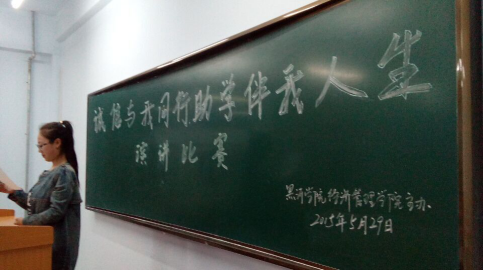 诚信与我同行助学伴我人生
演讲比赛
黑河学院经济管理学院主办
2015年5月29日